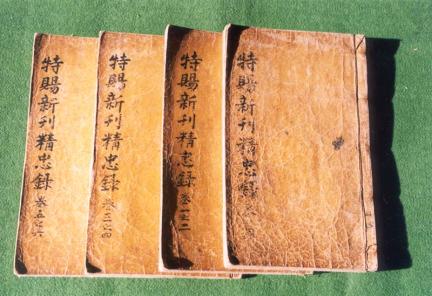 特賜新刊精忠錄
特賜新刊精忠錄 卷一之二
特賜新刊精忠錄 卷三之四
特賜新刊精忠錄 卷五之六